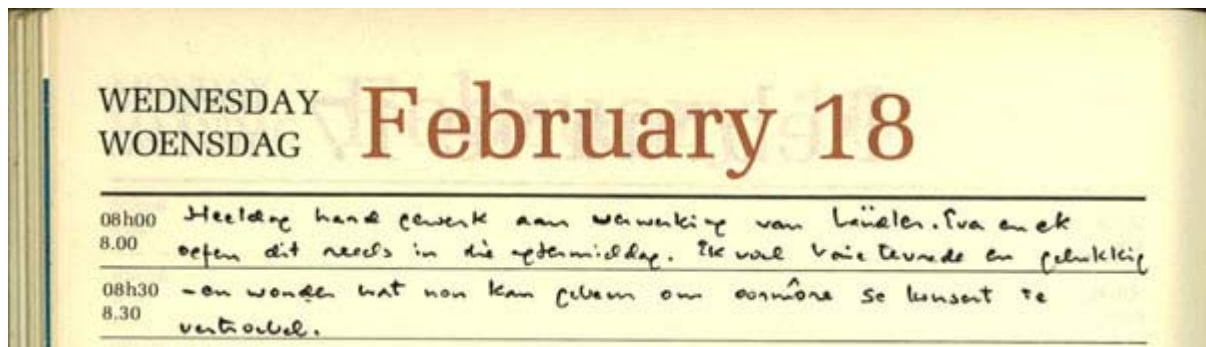 WEDNESDAY
WOENSDAG
February 18
08h00 Heeldag hard gewerk aan verwerking van Ländler. Eva en ek
8.00 oefen dit reeds in die agtermiddag. Ek voel baie tevrede en gelukkig
08h30 – en wonder wat nou kan gebeur om oormôre se konsert te
8.30 vertroebel.